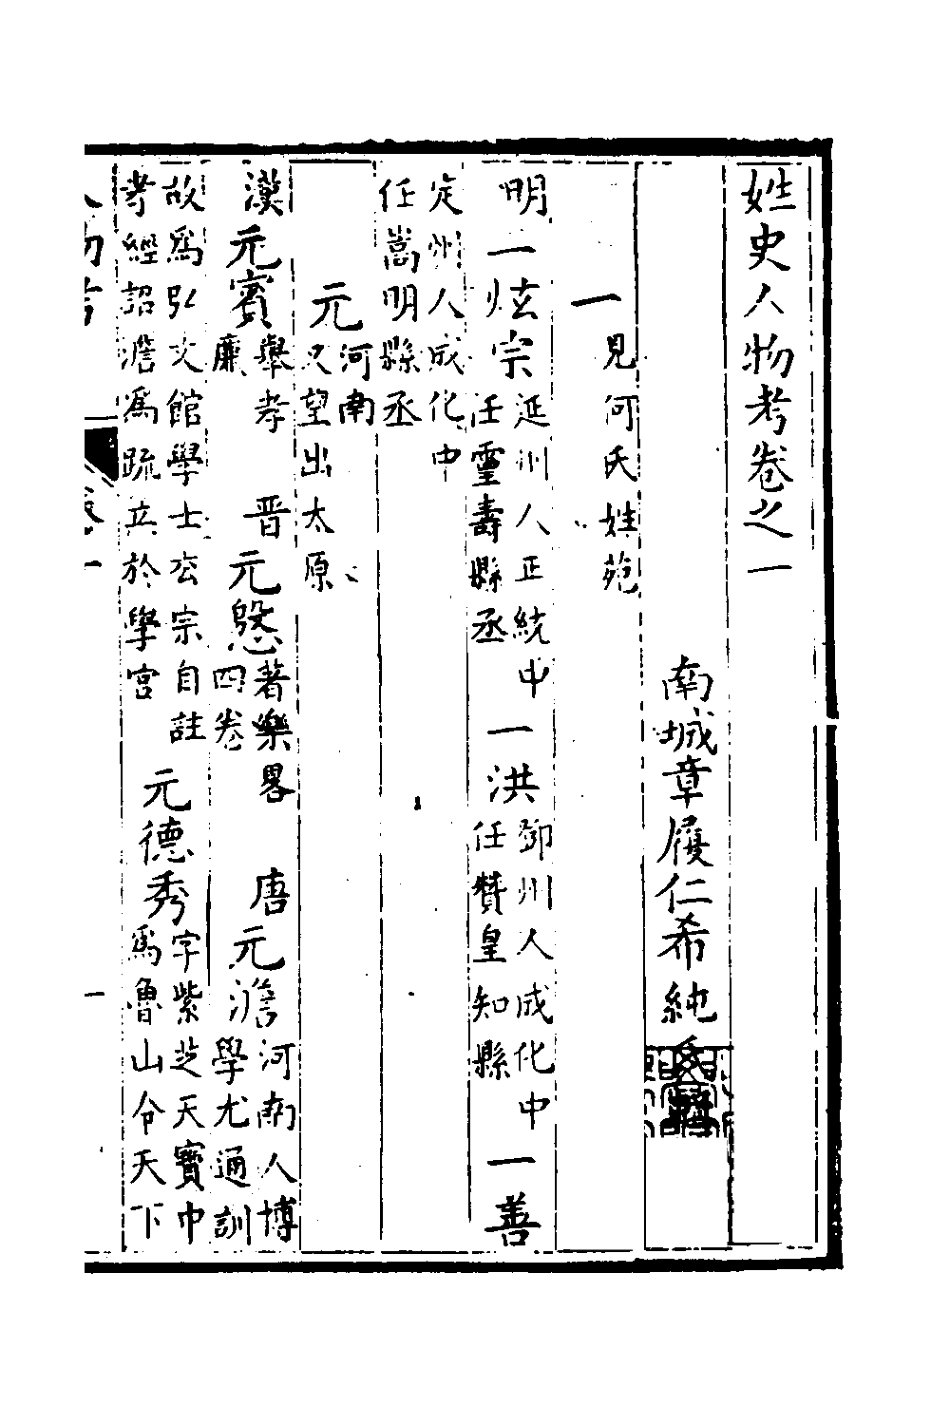 姓史人物考卷之一
南城章履仁希純氏
一 見何氏姓苑
明 一炫宗 延州人正統中任靈壽縣丞 一洪 鄧州人成化中任贊皇知縣 一善
定州人成化中任嵩明縣丞
元 河南又望出太原
漢 元賓 舉孝廉 晋 元慇 著樂畧四卷 唐 元澹 河南人博學尤通訓
故爲弘文館學士玄宗自註孝經詔澹爲疏立於學宮 元德秀 字紫芝天寶中爲魯山令天下
人物考 卷一 一